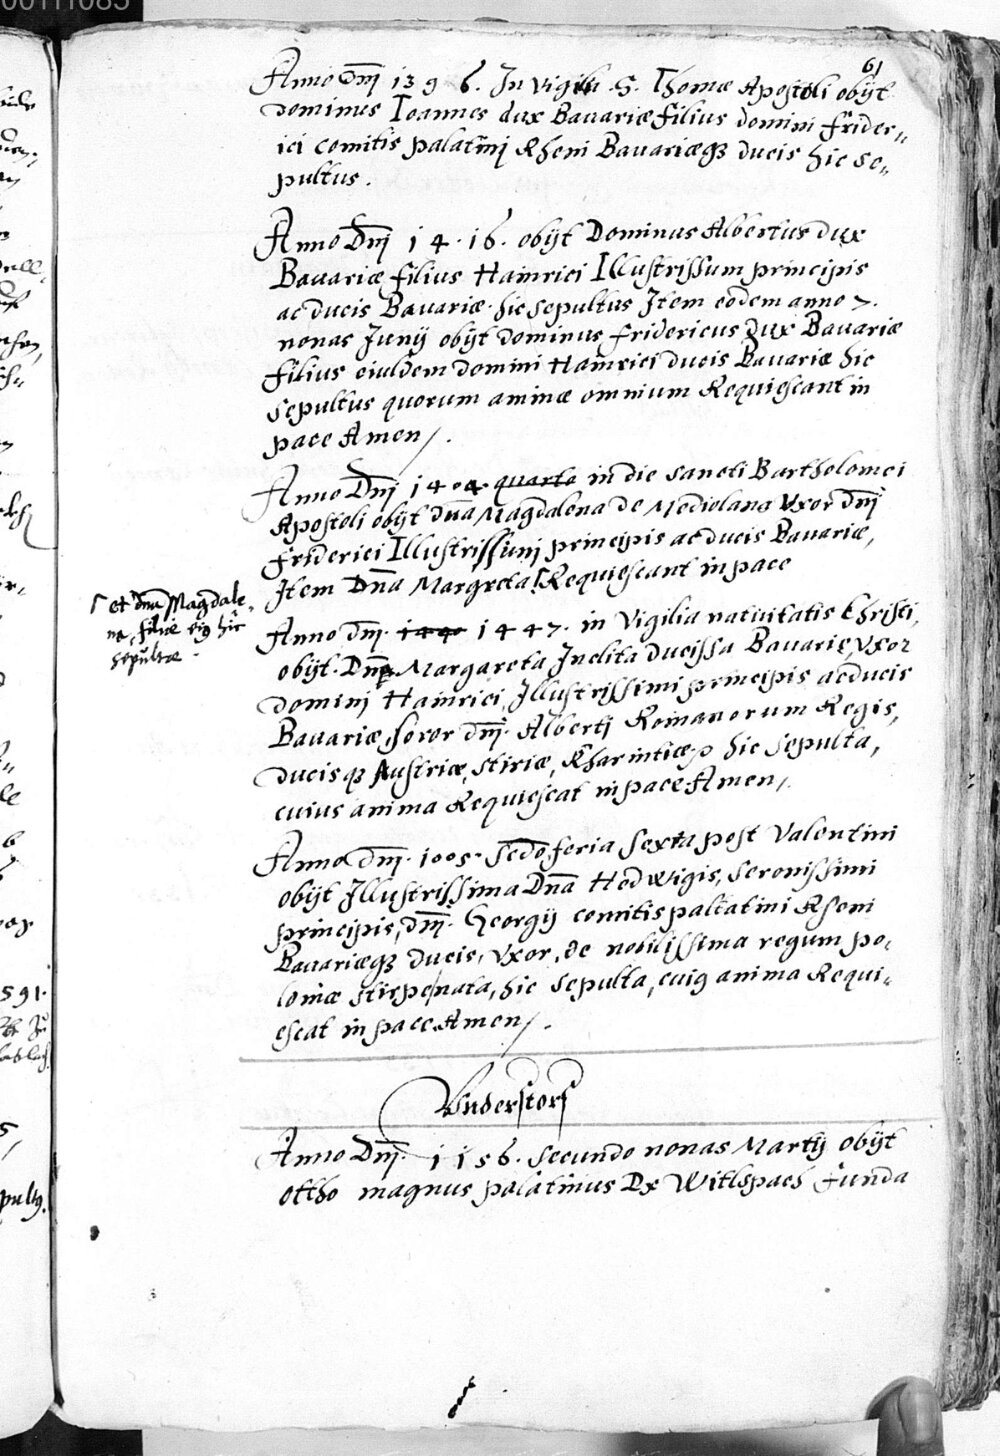 00111085
61
Anno Dnj 1396. In Vigilia S. Thomæ Apostoli obijt
Dominus Ioannes dux Bauariæ filius domini frider„
ici comitis palatinj Rheni Bauariæqȝ ducis hic se„
pultus.
Anno Dnj 1416. obijt Dominus Albertus dux
Bauariæ filius Hainrici Illustrissum principis
ac ducis Bauariæ hic sepultus Item eodem anno 7.
nonas Junij obijt dominus fridericus dux Bauariæ
filius eiusdem domini Hainrici ducis Bauariæ hic
sepultus quorum aminæ omnium Requiescant in
pace Amen/.
Anno Dnj 1404 quarto in die sancti Bartholomei
Apostoli obijt dna Magdalena de Mediolano Vxor dnj
friderici Illustrissimj principis ac ducis Bauariæ,
Item Dna Margreta Requiescant in pace
et dna Magdale„
na, filiæ eiꝰ hic
sepultæ
Anno dnj. 1440 1447. in Vigilia natiuitatis Christi,
obijt. Dna Margareta Inclita ducissa Bauariæ, Vxor
dominj Hainrici, Illustrissimi principis ac ducis
Bauariæ, soror dnj. Albertj Romanorum Regis,
ducisqȝ Austriæ, Stiriæ, Kharintiæ hic sepulta,
cuius anima Requiescat in pace Amen/.
Anno dnj. 1005. Sedo, feria sexta post Valentini
obijt Illustrissima Dna Hedwigis, Serenissimi
principis, dnj. Georgij comitis paltatini Rheni
Bauariæqȝ ducis, Vxor, de nobilissima regum po„
loniæ stirpe nata, hic sepulta, cuiꝰ anima Requi„
escat in pace Amen/.
Vnderstorf
Anno Dnj. 1156. secundo nonas Martij obijt
ottho magnus palatinus Dx Witlspach funda